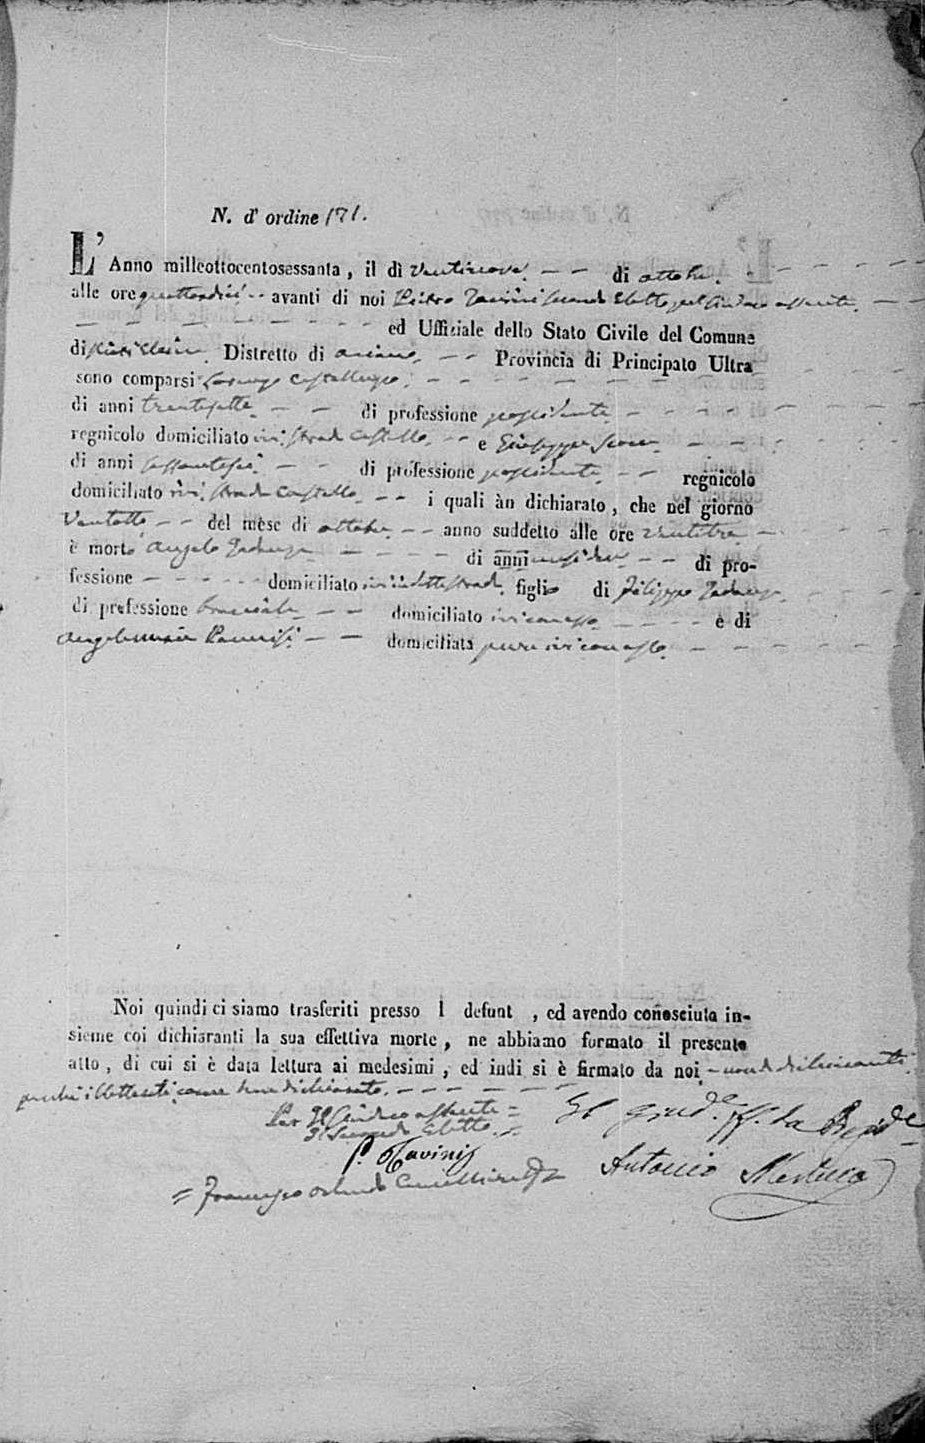 N. d' ordine 171.
L' Anno milleottocentosessanta, il dì ventinove. — — di ottobre.
alle ore quattordici — avanti di noi Pietro Tavinis Secondo Eletto pel Sindaco assente
ed Uffiziale dello Stato Civile del Comune
di Distretto di Ariano — Provincia di Principato Ultra
sono comparsi Lorenzo
di anni trentasette — — di professione possidente
regnicolo domiciliato ivi strada Castello — e Giuseppe
di anni sessantasei — di professione possidente — regnicolo
domiciliato ivi strada Castello — — i quali àn dichiarato, che nel giorno
Ventotto — — del mese di ottobre — — anno suddetto alle ore ventitre —
è morto Angelo — di anni — — di pro-
fessione — domiciliato ivi in detta strada figlio di Filippo
di professione bracciale — — domiciliato ivi come sopra — è di
Angelamaria — — domiciliata pure ivi come sopra
Noi quindi ci siamo trasferiti presso l defunt , ed avendo conosciuta in-
sieme coi dichiaranti la sua effettiva morte, ne abbiamo formato il presente
atto, di cui si è data lettura ai medesimi, ed indi si è firmato da noi, — non da dichiaranti
perchè illetterati come han dichiarato.
Per Il Sindaco assente =
Il Secondo Eletto
P. Tavinis
Il Giud.e ff. La
Antonio
= Francesco Orlando Cancelliere